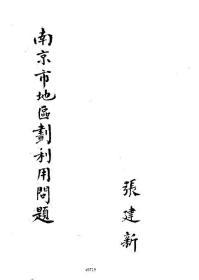 南京市地區劃利用問題
張建新